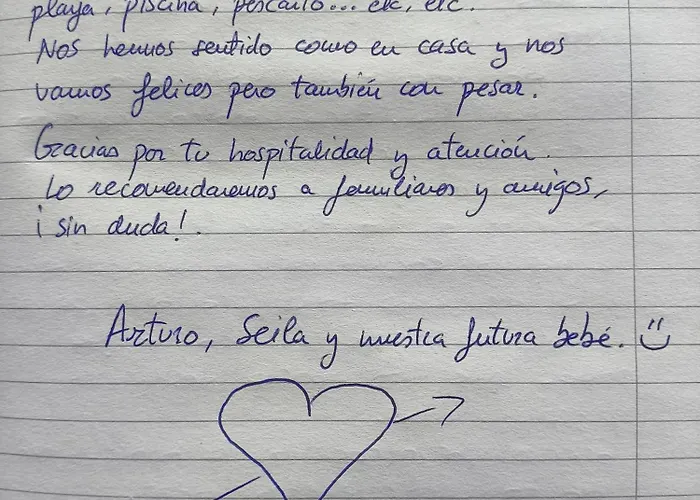 playa, piscina, pescaito... etc, etc.
Nos hemos sentido como en casa y nos
vamos felices pero también con pesar.
Gracias por tu hospitalidad y atención.
Lo recomendaremos a familiares y amigos,
¡sin duda!.
Arturo, Seila y nuestra futura bebé. :)